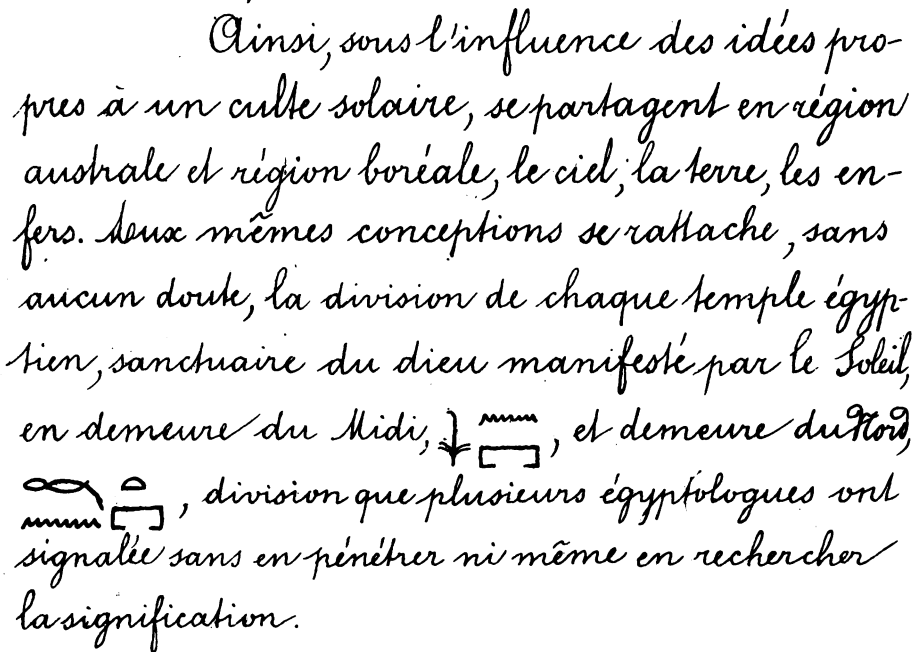 Ainsi, sous l'influence des idées pro-
pres à un culte solaire, se partagent en région
australe et région boréale, le ciel, la terre, les en-
fers. Aux mêmes conceptions se rattache, sans
aucun doute, la division de chaque temple égyp-
tien, sanctuaire du dieu manifesté par le Soleil,
en demeure du Midi, 𓇓𓈖𓉐, et demeure du Nord,
𓎛𓈖𓏏𓉐, division que plusieurs égyptologues ont
signalée sans en pénétrer ni même en rechercher
la signification.